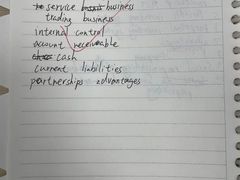 service business
trading business
internal control
account receivable
cash
current liabilities
partnerships advantages